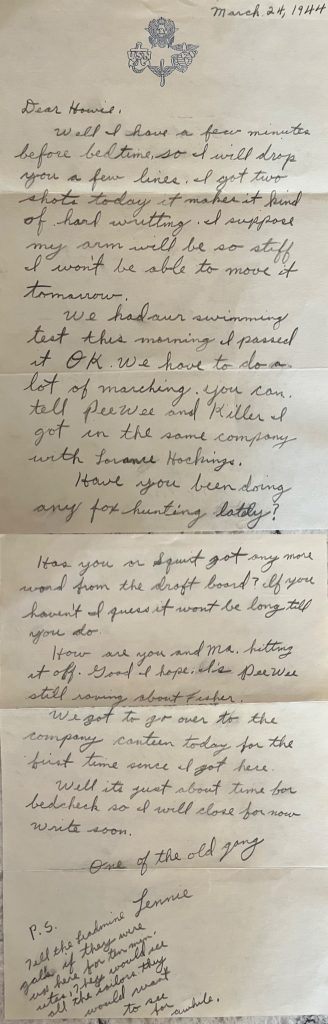 March 24, 1944
Dear Howie,
Well I have a few minutes
before bedtime, so I will drop
you a few lines. I got two
shots today it makes it kind
of hard writting. I suppose
my arm will be so stiff
I won't be able to move it
tomarrow.
We had our swimming
test this morning I passed
it OK. We have to do a
lot of marching. you can
tell PeeWee and Killer I
got in the same company
with Lorance Hockings.
Have you been doing
any fox hunting lately?
Has you or Squirt got any more
word from the draft board? If you
haven't I guess it wont be long till
you do.
How are you and Ma. hitting
it off. Good I hope. Is PeeWee
still raving about Fisher.
We got to go over to the
company canteen today for the
first time since I got here.
Well its just about time for
bedcheck so I will close for now
Write soon.
One of the old gang
Lennie
P.S.
Tell the Leadmine
gals if they were
up here for ten min-
utes, they would see
all the sailors they
would want
to see
for awhile.